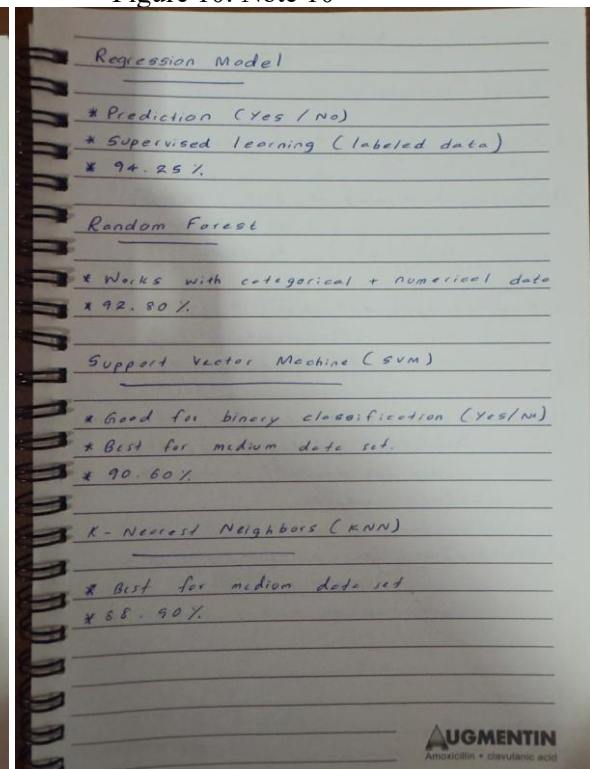 Figure 10: Note 10
Regression Model
* Prediction (Yes / No)
* Supervised learning (labeled data)
* 94.25 %
Random Forest
* Works with categorical + numerical data
* 92.80 %
Support Vector Machine (SVM)
* Good for binary classification (Yes/No)
* Best for medium data set.
* 90.60 %
K-Nearest Neighbors (KNN)
* Best for medium data set
* 88.90 %
AUGMENTIN
Amoxicillin + clavulanic acid